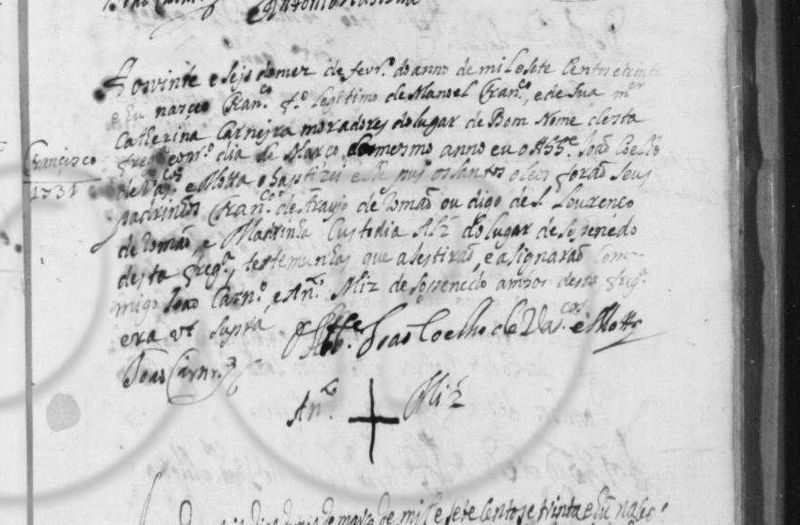 Francisco
1731
Aos vinte e seis do mez de fevr.º do anno de mil e sete centos e trinta
e hu nasceo Fran.co f.º legitimo de Manoel Fran.co, e de sua m.er
Catherina Carneyra moradores do lugar de Bom Nome desta
freg. e o pr.º dia de Março do mesmo anno eu o Abb.e João Coelho
de Vas.cos e Motta o baptizei e lhe pus os santos oleos forão seus
padrinhos Fran.co de Araujo de Romão ou digo de S. Lourenço
de Romão, e Madrinha Custodia Alz do lugar de
desta freg.ª, testemunhas que asestirão, e asignarão com-
migo João Carn.º, e An.to Miz de ambos desta freg.ª
era ut supra
O Abb.e João Coelho de Vas.cos e Motta
João Carnr.º
An.to + Miz
mes de março de mil e sete centos e trinta e hu nasceo